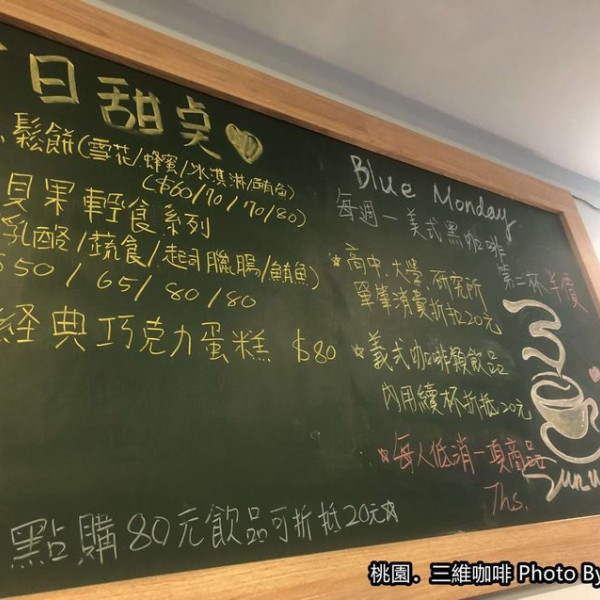 日甜点
鬆餅(雪花/蜂蜜/冰淇淋/鮪魚)
($60/70/70/80)
貝果輕食系列
乳酪/蔬食/起司臘腸/鮪魚)
$50/65/80/80
經典巧克力蛋糕 $80
點購80元飲品可折抵20元
Blue Monday
每週一美式黑咖啡
第二杯半價
高中.大學.研究所
單筆消費折抵20元
義式咖啡類飲品
內用續杯折抵20元
每人低消一項商品
Ths.
桃園．三維咖啡 Photo By